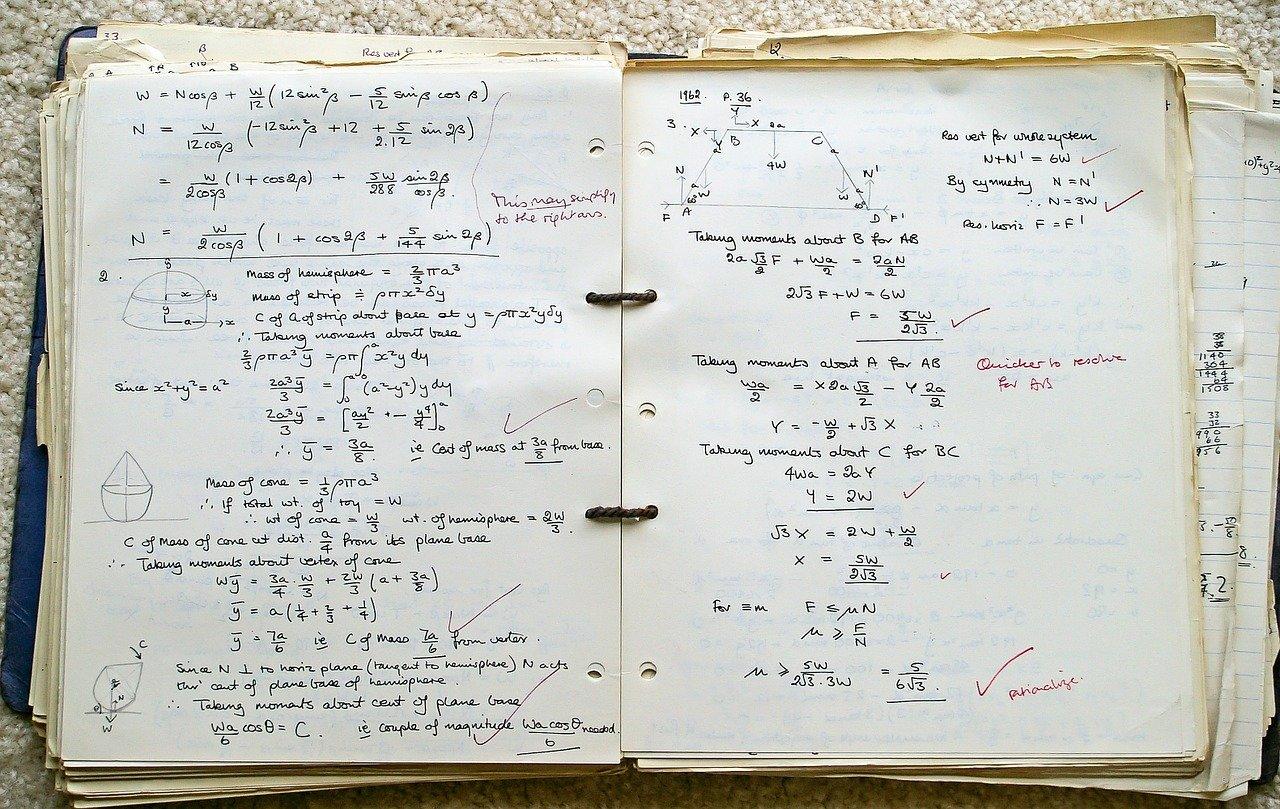 33.
β
Res vert
A
B
W = N cos β + W/12 (12 sin²β − 5/12 sin β cos β)
N = W/12cosβ (−12 sin²β + 12 + 5/2.12 sin 2β)
= W/2cosβ (1 + cos 2β) + 5W/288 sin 2β/cos β.
This may simplify
to the right ans.
N = W/2cosβ (1 + cos 2β + 5/144 sin 2β)
2.
Mass of hemisphere = 2/3 πa³
Mass of strip ≑ ρπx²δy
C of M of strip about base at y = ρπx²yδy
∴ Taking moments about base
2/3 ρπa³ȳ = ρπ∫₀ᵃ x²y dy
Since x²+y² = a²
2a³ȳ/3 = ∫₀ᵃ (a²−y²) y dy
2a³ȳ/3 = [ay²/2 + − y⁴/4]₀ᵃ
∴ ȳ = 3a/8 ie Cent of mass at 3a/8 from base.
Mass of cone = 1/3 ρπa³
∴ If total wt. of toy = W
∴ wt of cone = W/3 wt. of hemisphere = 2W/3.
C of Mass of cone at dist. a/4 from its plane base
∴ Taking moments about vertex of cone
Wȳ = 3a/4 . W/3 + 2W/3 (a + 3a/8)
ȳ = a(1/4 + 2/3 + 1/4)
ȳ = 7a/6 ie C of Mass 7a/6 from vertex.
C
θ
N
W
Since N ⊥ to horiz plane (tangent to hemisphere) N acts
thro' cent of plane base of hemisphere.
∴ Taking moments about cent of plane base
Wa/6 cos θ = C. ie couple of magnitude Wa cos θ/6 needed.
1962. P. 36.
3.
X
Y
X
2a
B
C
4W
a
a
N
W
W
N'
60°
60°
F
A
D
F'
Res vert for whole system
N+N' = 6W
By symmetry N = N'
∴ N = 3W
Res. horiz F = F'
Taking moments about B for AB
2a √3/2 F + Wa/2 = 2aN/2
2√3 F + W = 6W
F = 5W/2√3.
Taking moments about A for AB
Quicker to resolve
for AB
Wa/2 = X 2a √3/2 − Y 2a/2
Y = −W/2 + √3 X
Taking moments about C for BC
4Wa = 2aY
Y = 2W
√3 X = 2W + W/2
X = 5W/2√3
For ≡m F ≤ μN
μ ≥ F/N
μ ≥ 5W/2√3.3W = 5/6√3.
rationalize.
38
38
1140
304
1444
64
1508
33
32
990
66
956